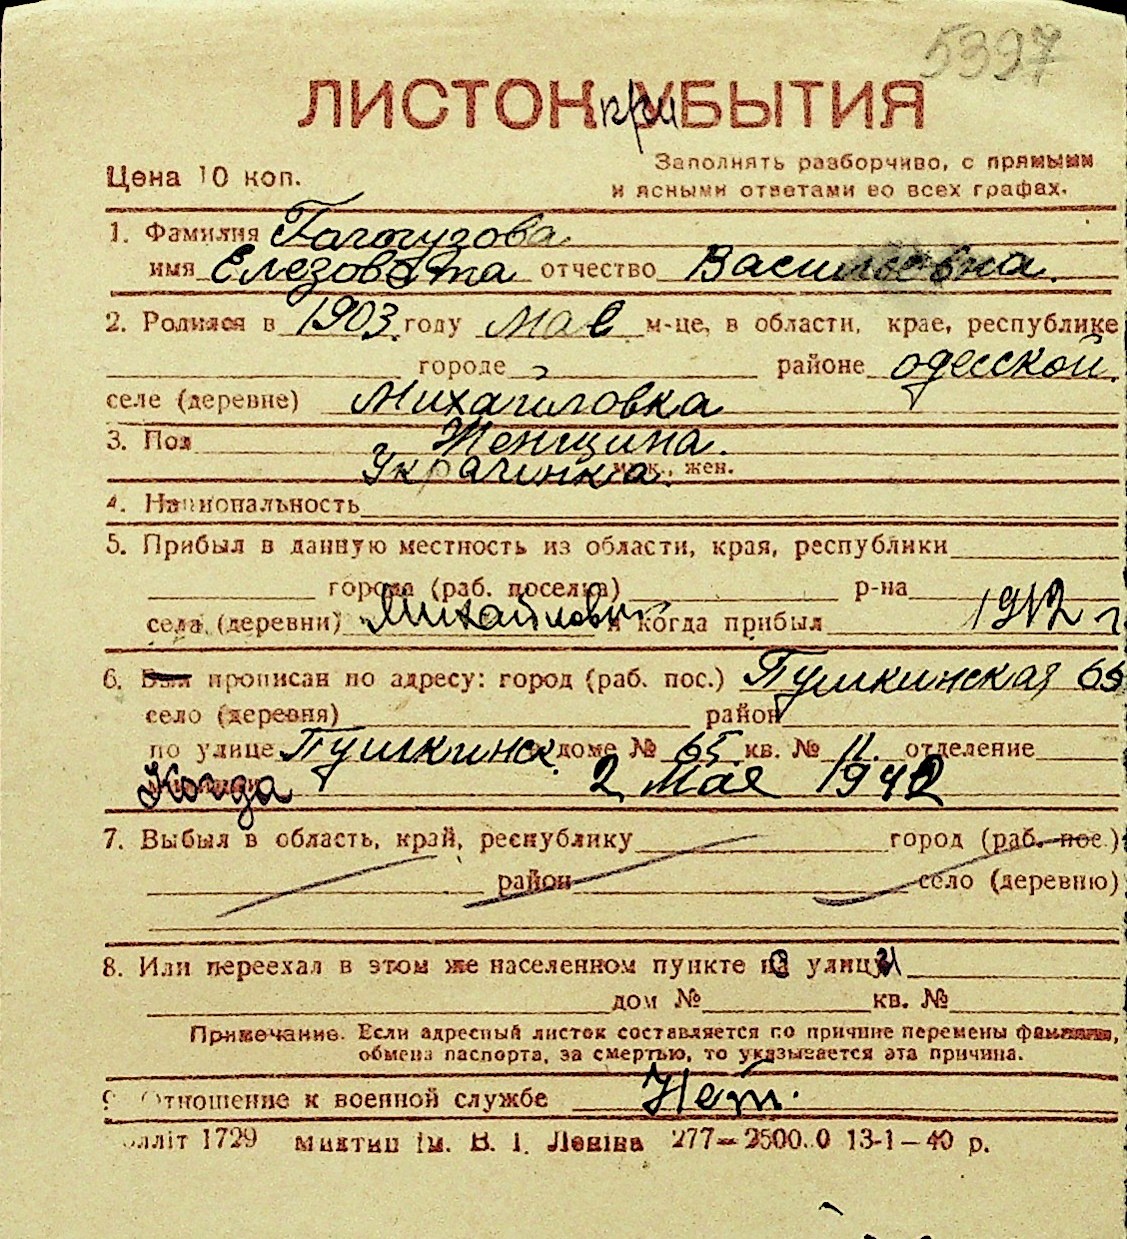 5397
ЛИСТОК при УБЫТИЯ
Цена 10 коп.
Заполнять разборчиво, с прямыми
и ясными ответами во всех графах.
1. Фамилия
имя Елезовета отчество Васильевна
2. Родился в 1903 году мае м-це, в области, крае, республике
городе районе одесской
селе (деревне) Михайловка
3. Пол Женщина.
Украинка. муж., жен.
4. Национальность
5. Прибыл в данную местность из области, края, республики
города (раб. поселка) р-на
села (деревни) и когда прибыл 1912 г
6. Был прописан по адресу: город (раб. пос.) Пушкинская 65
село (деревня) район
по улице Пушкинск. доме № 65 кв. № 11 отделение
Когда 2 Мая 1942
7. Выбыл в область, край, республику город (раб. пос.)
район село (деревню)
8. Или переехал в этом же населенном пункте на улицу
дом № кв. №
Примечание. Если адресный листок составляется по причине перемены фамилии,
обмена паспорта, за смертью, то указывается эта причина.
9. Отношение к военной службе Нет.
олліт 1729 Миктип ім. В. І. Леніна 277—2500.0 13-1—40 р.